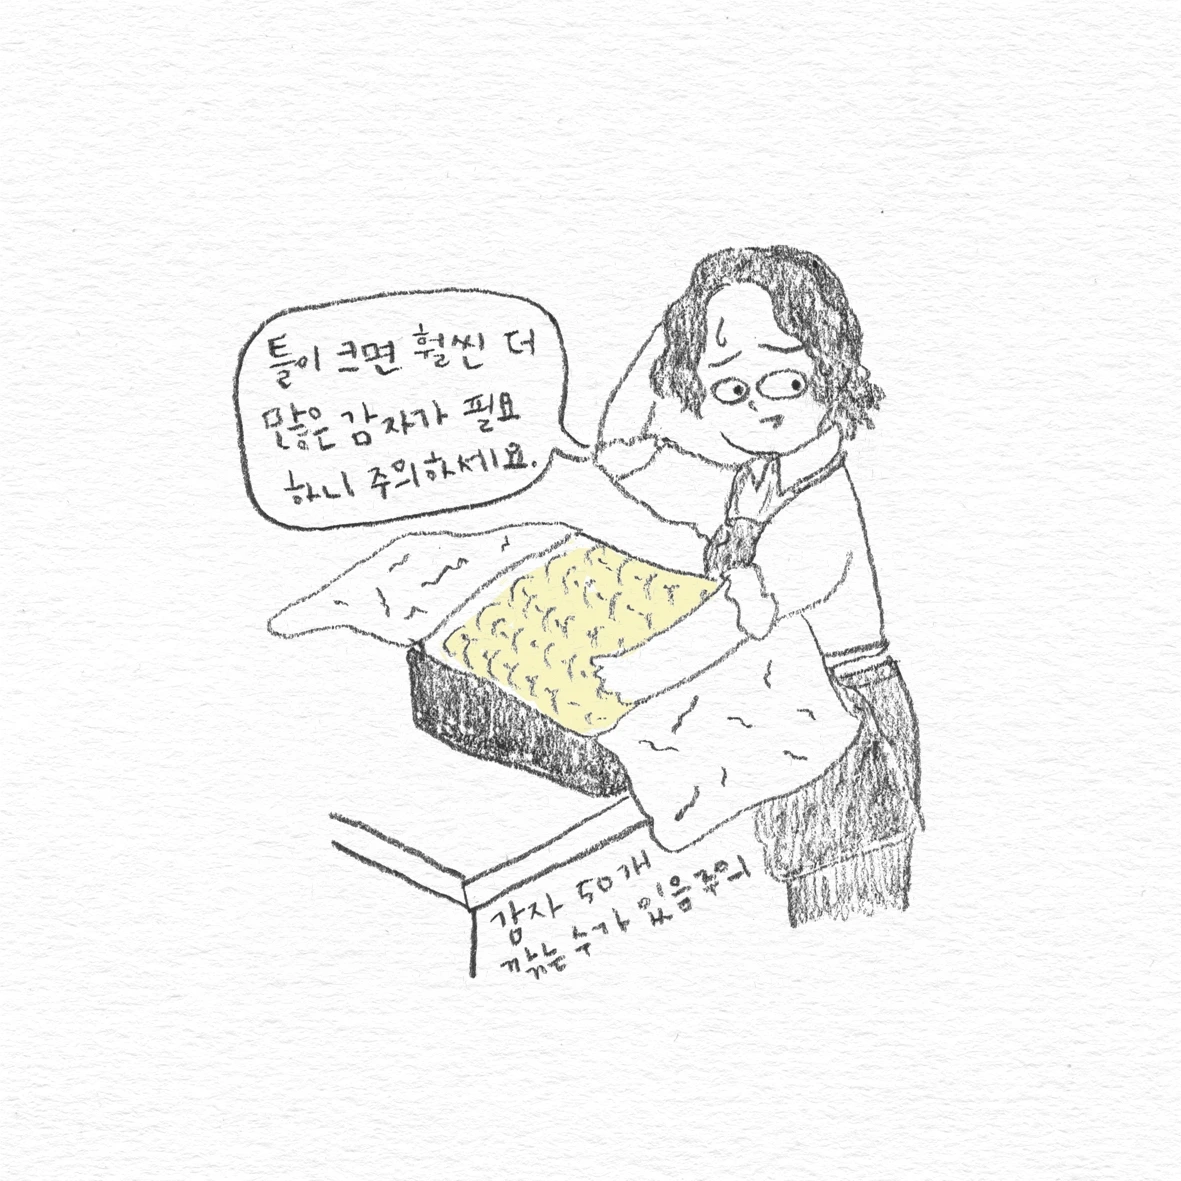 틀이 크면 훨씬 더
많은 감자가 필요
하니 주의하세요.
감자 50개
깎는 수가 있음 주의